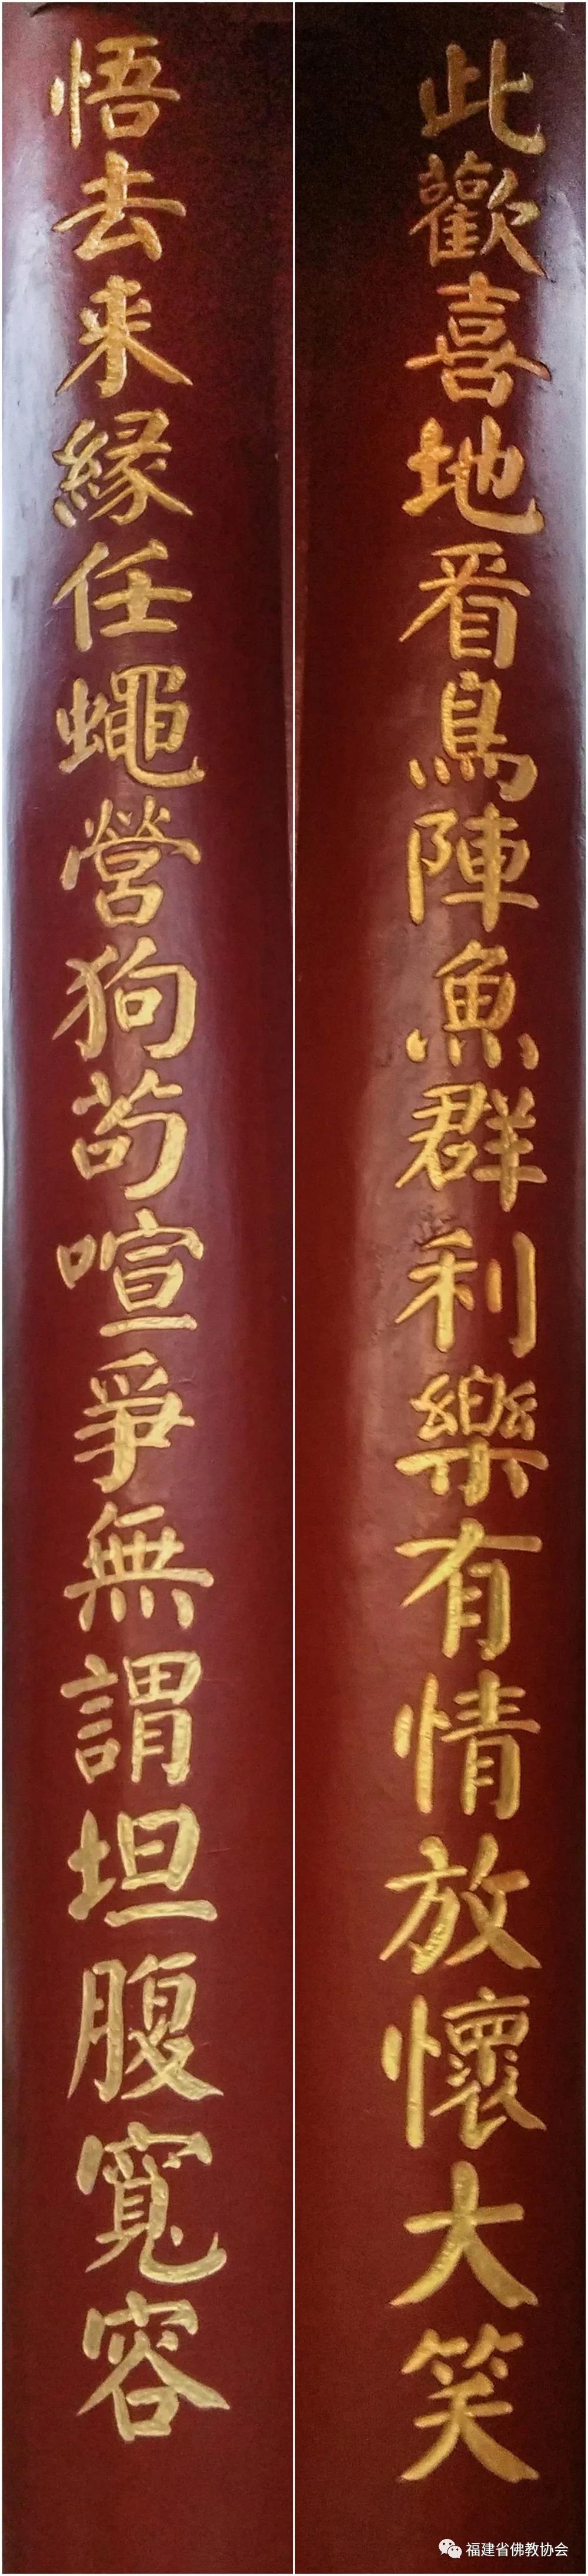 此歡喜地看鳥陣魚群利樂有情放懷大笑
悟去来緣任蠅營狗苟喧爭無謂坦腹寬容
福建省佛教协会